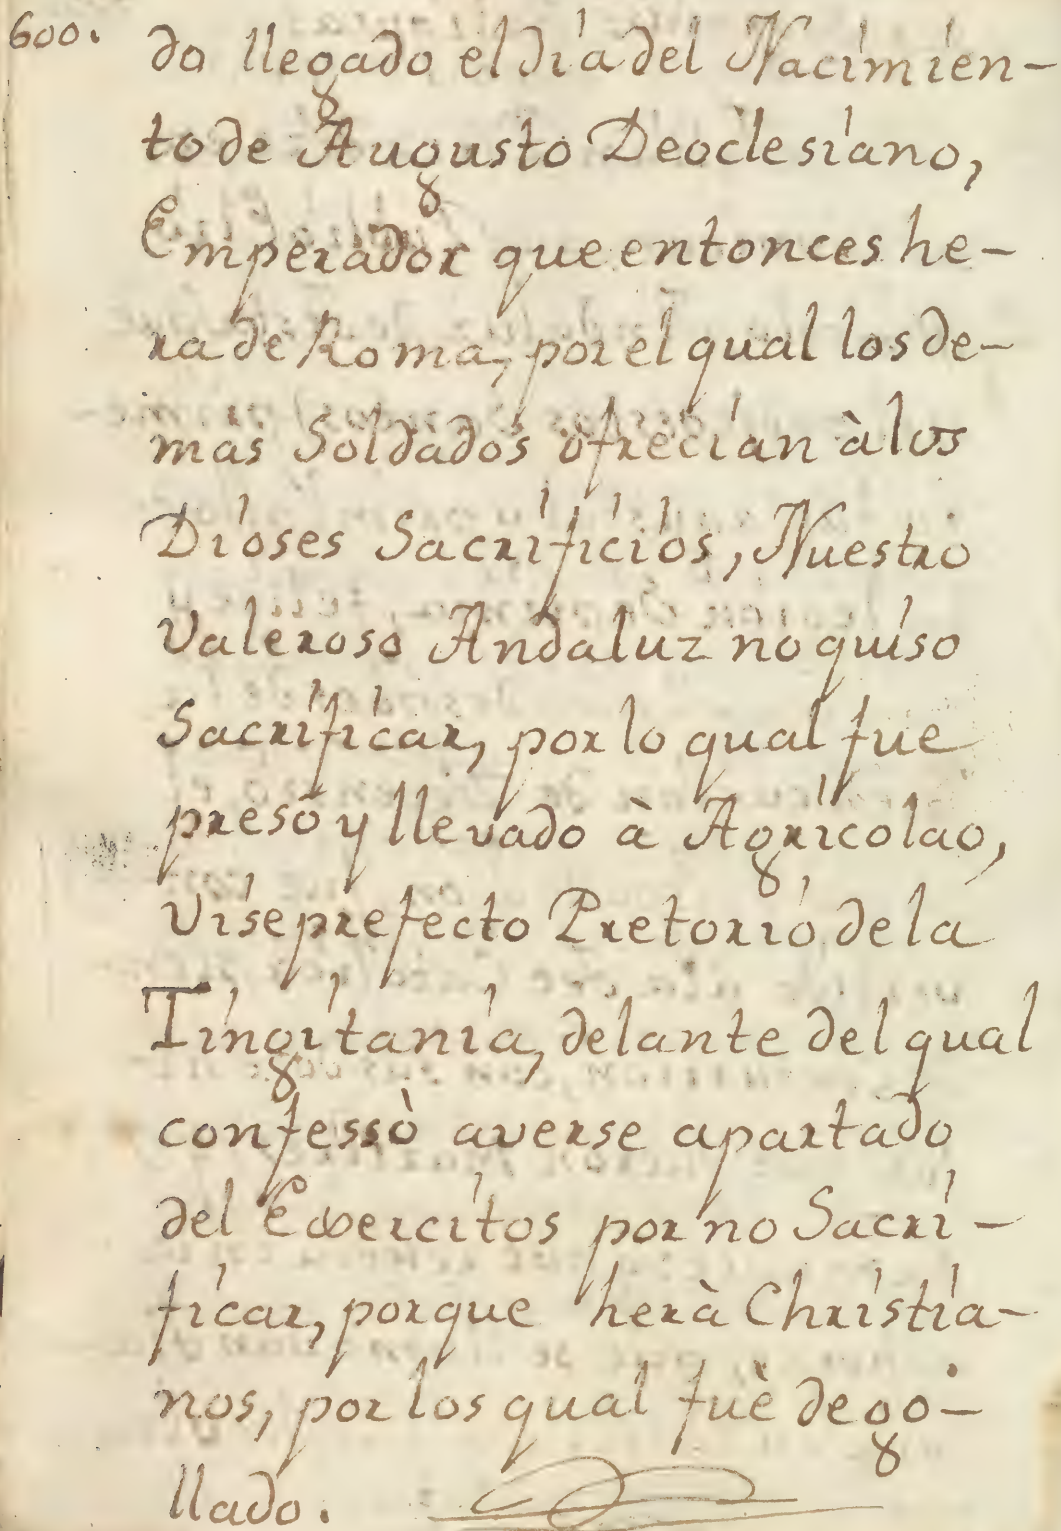 600.
do llegado el día del Nacimien-
to de Augusto Deoclesiano,
Emperador que entonces he-
ra de Roma, por el qual los de-
más Soldados ofrecían à los
Dioses Sacrificios, Nuestro
Valeroso Andaluz no quiso
Sacrificar, por lo qual fue
preso y llevado à Agricolao,
Viseprefecto Pretorio de la
Tingitania, delante del qual
confessò averse apartado
del Exercitos por no Sacri-
ficar, porque herà Christia-
nos, por los qual fuè dego-
llado.